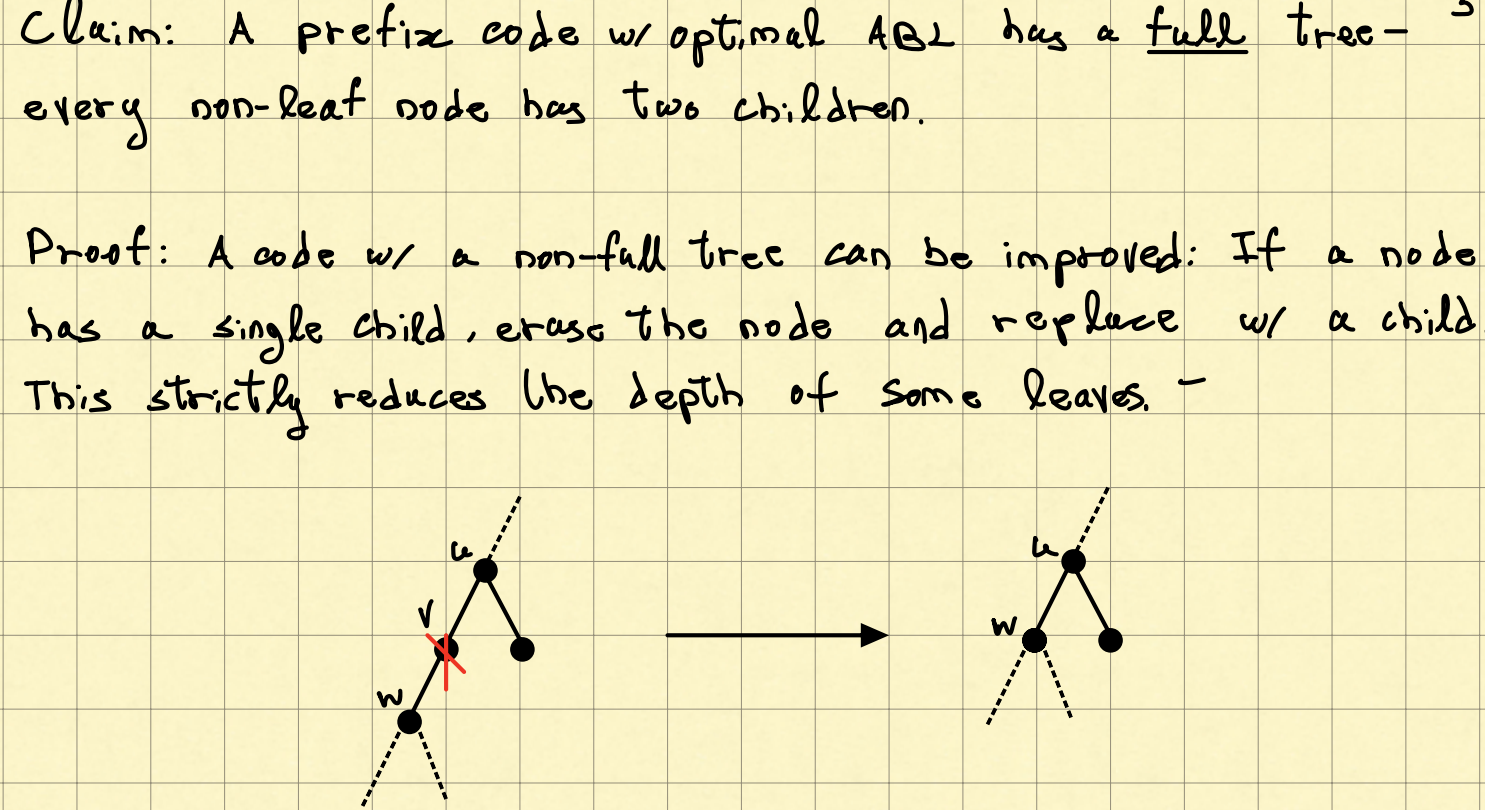 Claim: A prefix code w/ optimal ABL has a full tree-
every non-leaf node has two children.
Proof: A code w/ a non-full tree can be improved: If a node
has a single child, erase the node and replace w/ a child.
This strictly reduces the depth of some leaves. -
u
v
w
u
w